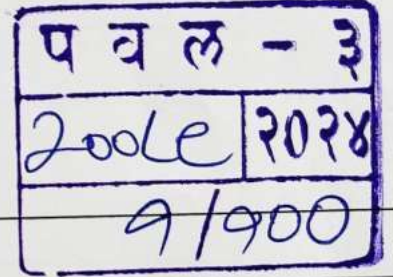 प व ल - ३
२००८९ २०२४
१/१००